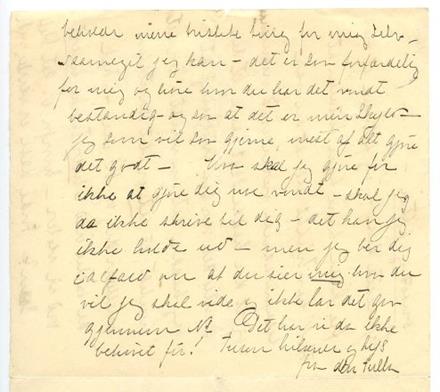 beholde mine triste ting for mig selv –
saameget jeg kan – det er saa forfærdelig
for mig og høre hvor du har det vondt
bestandig – og saa at det er min Skyld –
jeg som vil saa gjerne, mest af alt gjøre
det godt – Hva skal jeg gjøre for
ikke at gjøre dig noe vondt – skal jeg
da ikke skrive til dig – det kan jeg
ikke holde ud – men jeg ber dig
ialfald om at du sier mig hva du
vil jeg skal vide og ikke lar det gaa
gjennem N. Det har vi da ikke
behøvet før! Tusen hilsener og kys
fra din Tulla